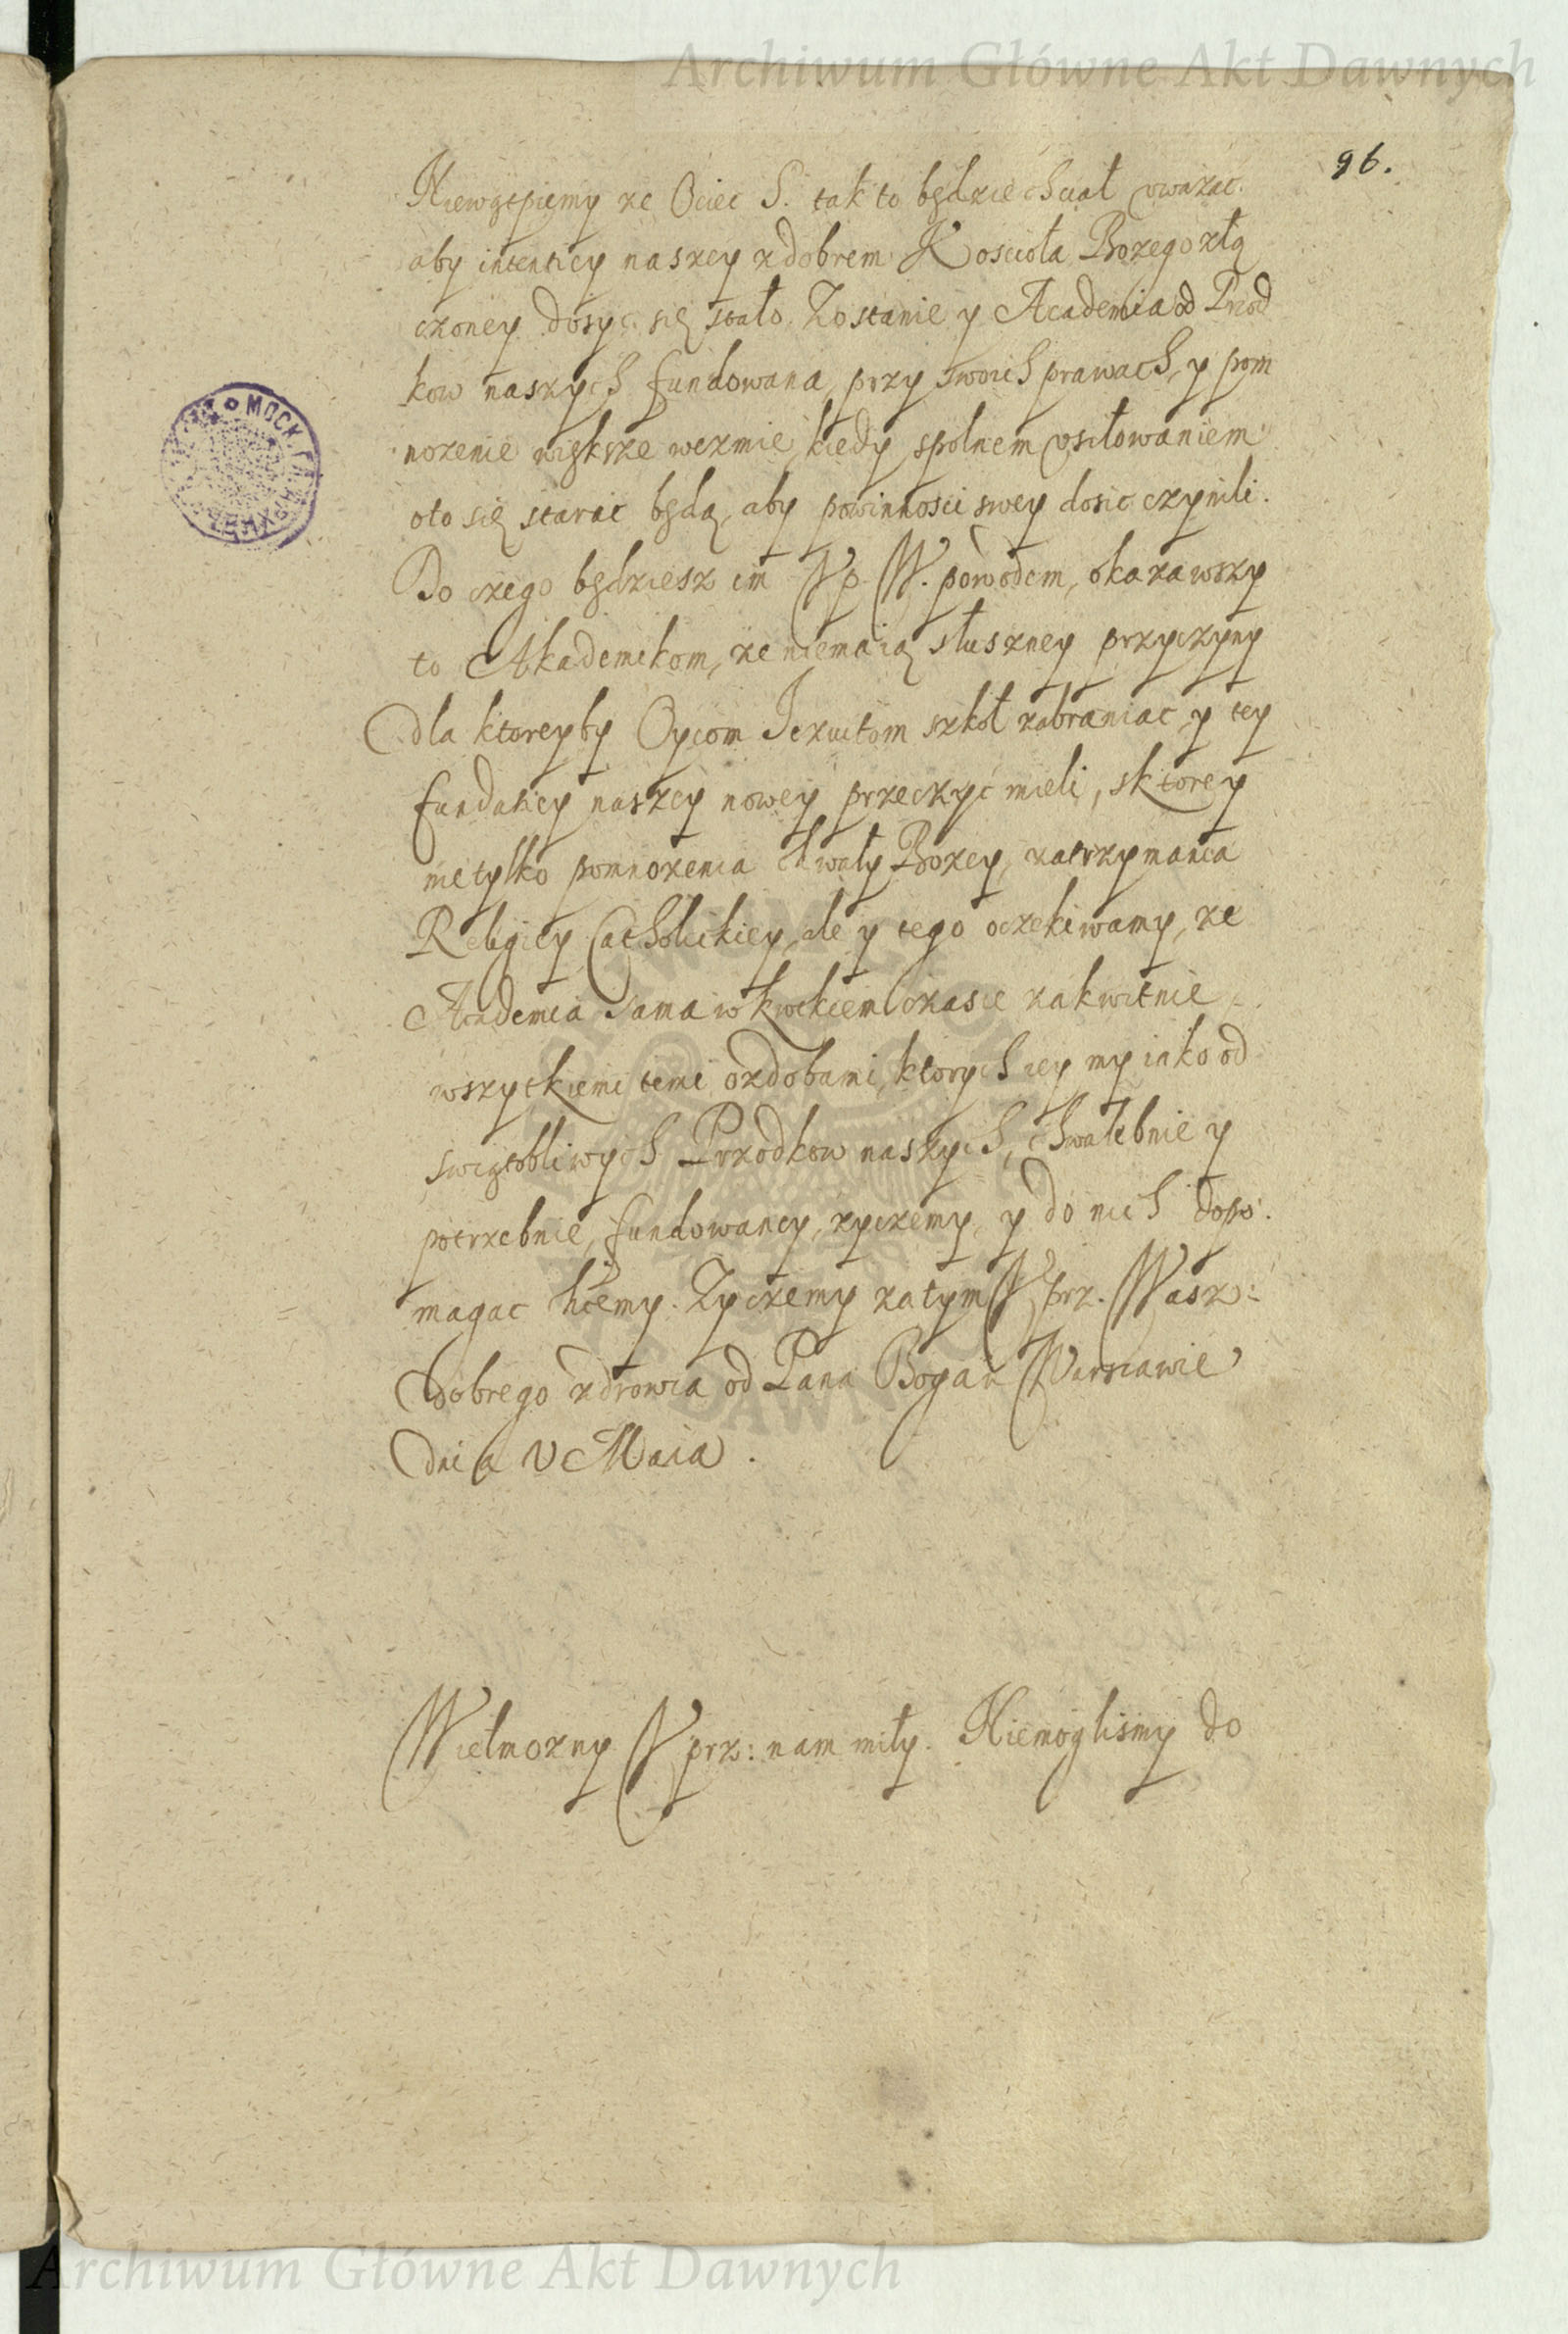 Archiwum Główne Akt Dawnych
96.
Niewątpiemy ze Ociec S. tak to będzie chciał uwazac.
aby intenticy naszey z dobrem Koscioła Bozego złą
czoney dosyc się stało, Zostanie y Academia od Przod
kow naszych fundowana, przy swoich prawach, y pom
nozenie większe wezmie, kiedy spolnem usiłowaniem
oto się starac będą, aby powinnosci swey dosic czynili.
Do czego będziesz im Up. W. powodem, okazawszy
to Akademikom, ze niemaią słuszney przyczyny
dla ktoreyby Oycom Jezuitom szkoł zabraniac y tey
fundaticy naszey nowey przeczyć mieli, sktorey
nietylko pomnozenia chwały Bozey, zatrzymania
Religiey Catholickiey, ale y tego oczekiwamy, ze
Academia sama w krotkiem czasie zakwitnie
wszytkiemi temi ozdobami, ktorych iey my iako od
swiętobliwych Przodkow naszych, chwalebnie y
potrzebnie, fundowaney, zyczemy, y do nich dopo
magac hcemy. Zyczemy zatym Uprz. Wasz:
dobrego zdrowia od Pana Boga w Warszawie
dnia V Maia.
Wielmozny Uprz: nam miły. Niemoglismy do
Archiwum Główne Akt Dawnych